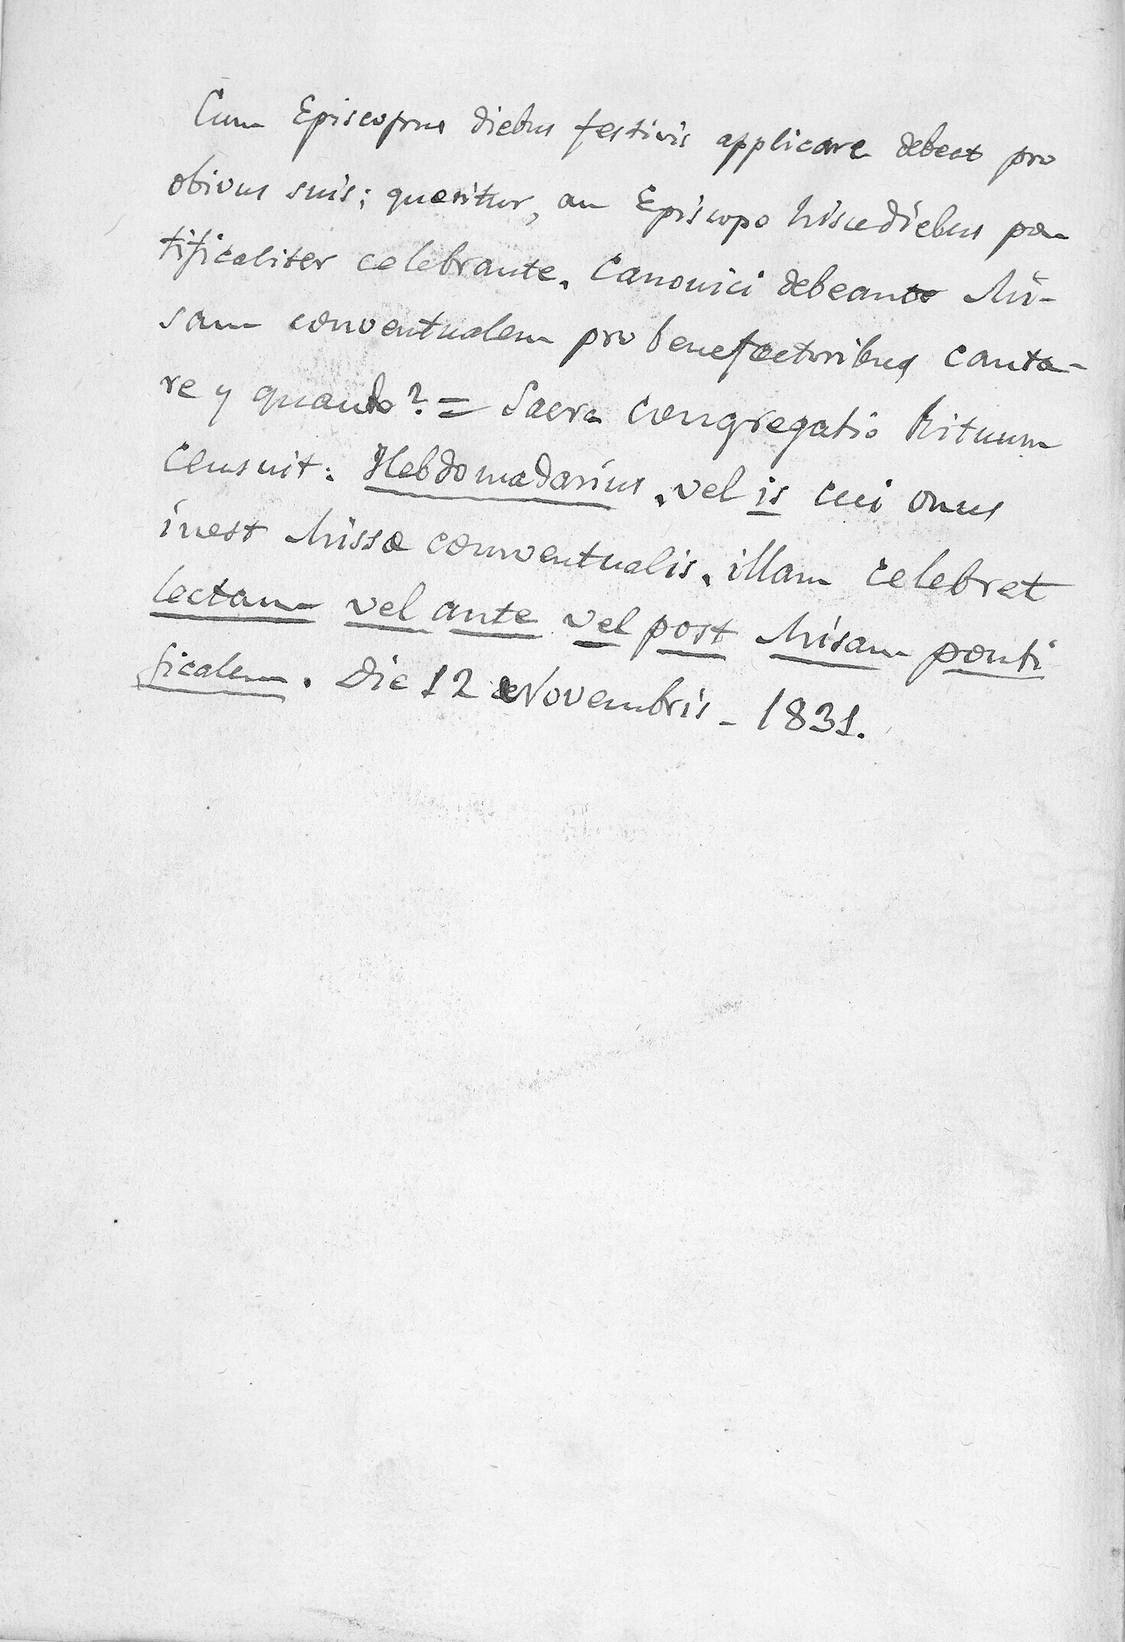 Cum Episcopus diebus festivis applicare debeat pro
obivus suis; quæritur, an Episcopo hisce diebus pon
tificaliter celebrante, Canonici debeant Mi-
sam conventualem pro benefactoribus canta-
re y quando? = Sacra Congregatio Rituum
censuit: Hebdomadarius, vel is cui onus
inest Missæ conventualis, illam celebret
lectam vel ante vel post Misam ponti
ficalem. Die 12 Novembris - 1831.